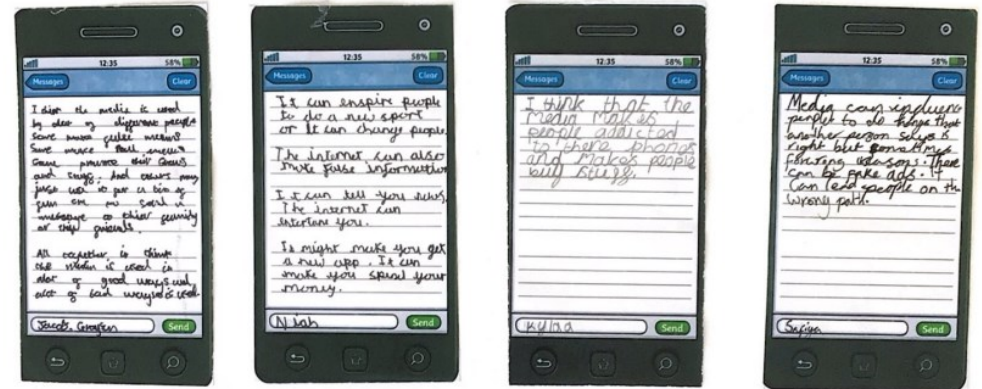 12:35 58%
Messages Clear
the media is used
by alot of different people
Some make
Some make
Some promote their
and And others may
just use it for a bit of
fun or to send a
message to their family
or their friends.
All together i think
the media is used in
alot of good ways and
alot of bad ways
Jacob. Send
12:35 58%
Messages Clear
It can enspire people
to do a new sport
or It can change people.
The internet can also
make false information
It can tell you
The internet can
you.
It might make you get
a new app. It can
make you spend your
money.
Niah Send
12:35 58%
Messages Clear
I think that the
Media Makes
people addicted
to there phones
and Makes people
buy stuff.
Send
12:35 58%
Messages Clear
Media can
people to do things that
another person says is
right but sometimes
for wrong reasons. There
can be fake ads. It
can lead people on the
wrong path.
Safiya Send